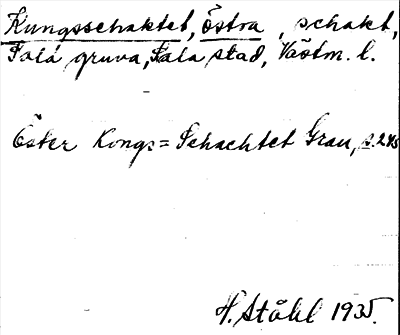 Kungsschaktet, östra, schakt,
Sala gruva, Sala stad, Västm. l.
Öster Kongs= Schachtet Grau, s. 245
H. Ståhl 1935.